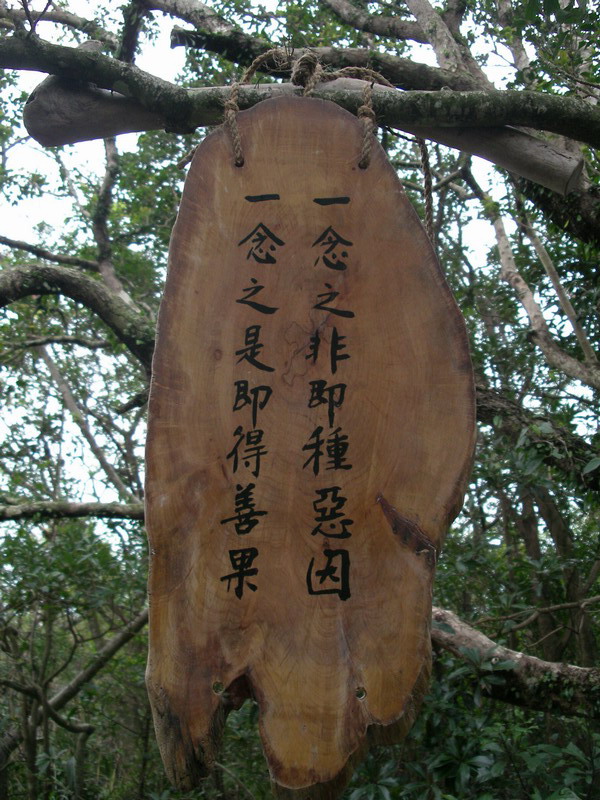 一念之非即種惡因
一念之是即得善果